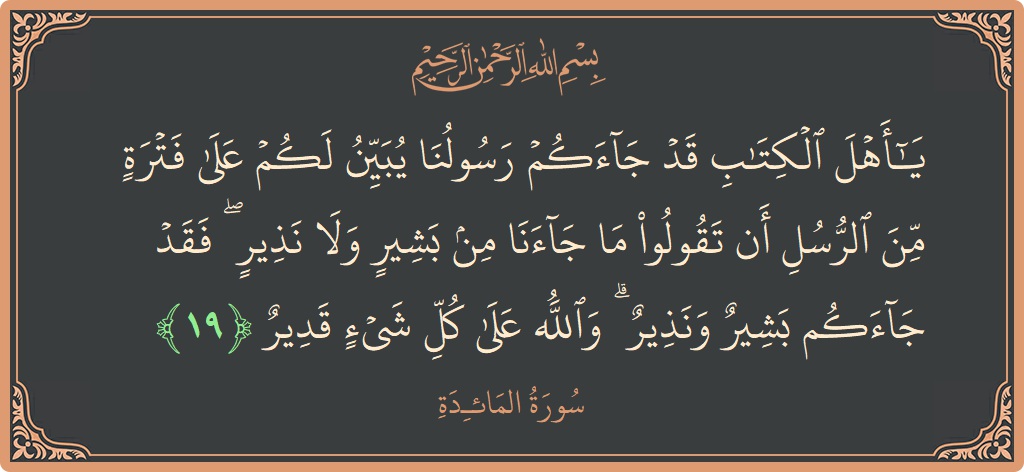 بِسْمِ اللَّهِ الرَّحْمَٰنِ الرَّحِيمِ
يَـٰٓأَهْلَ ٱلْكِتَـٰبِ قَدْ جَآءَكُمْ رَسُولُنَا يُبَيِّنُ لَكُمْ عَلَىٰ فَتْرَةٍ
مِّنَ ٱلرُّسُلِ أَن تَقُولُوا۟ مَا جَآءَنَا مِنۢ بَشِيرٍ وَلَا نَذِيرٍ ۖ فَقَدْ
جَآءَكُم بَشِيرٌ وَنَذِيرٌ ۗ وَٱللَّهُ عَلَىٰ كُلِّ شَىْءٍ قَدِيرٌ ﴿١٩﴾
سُورَةُ المَائـِدَةِ